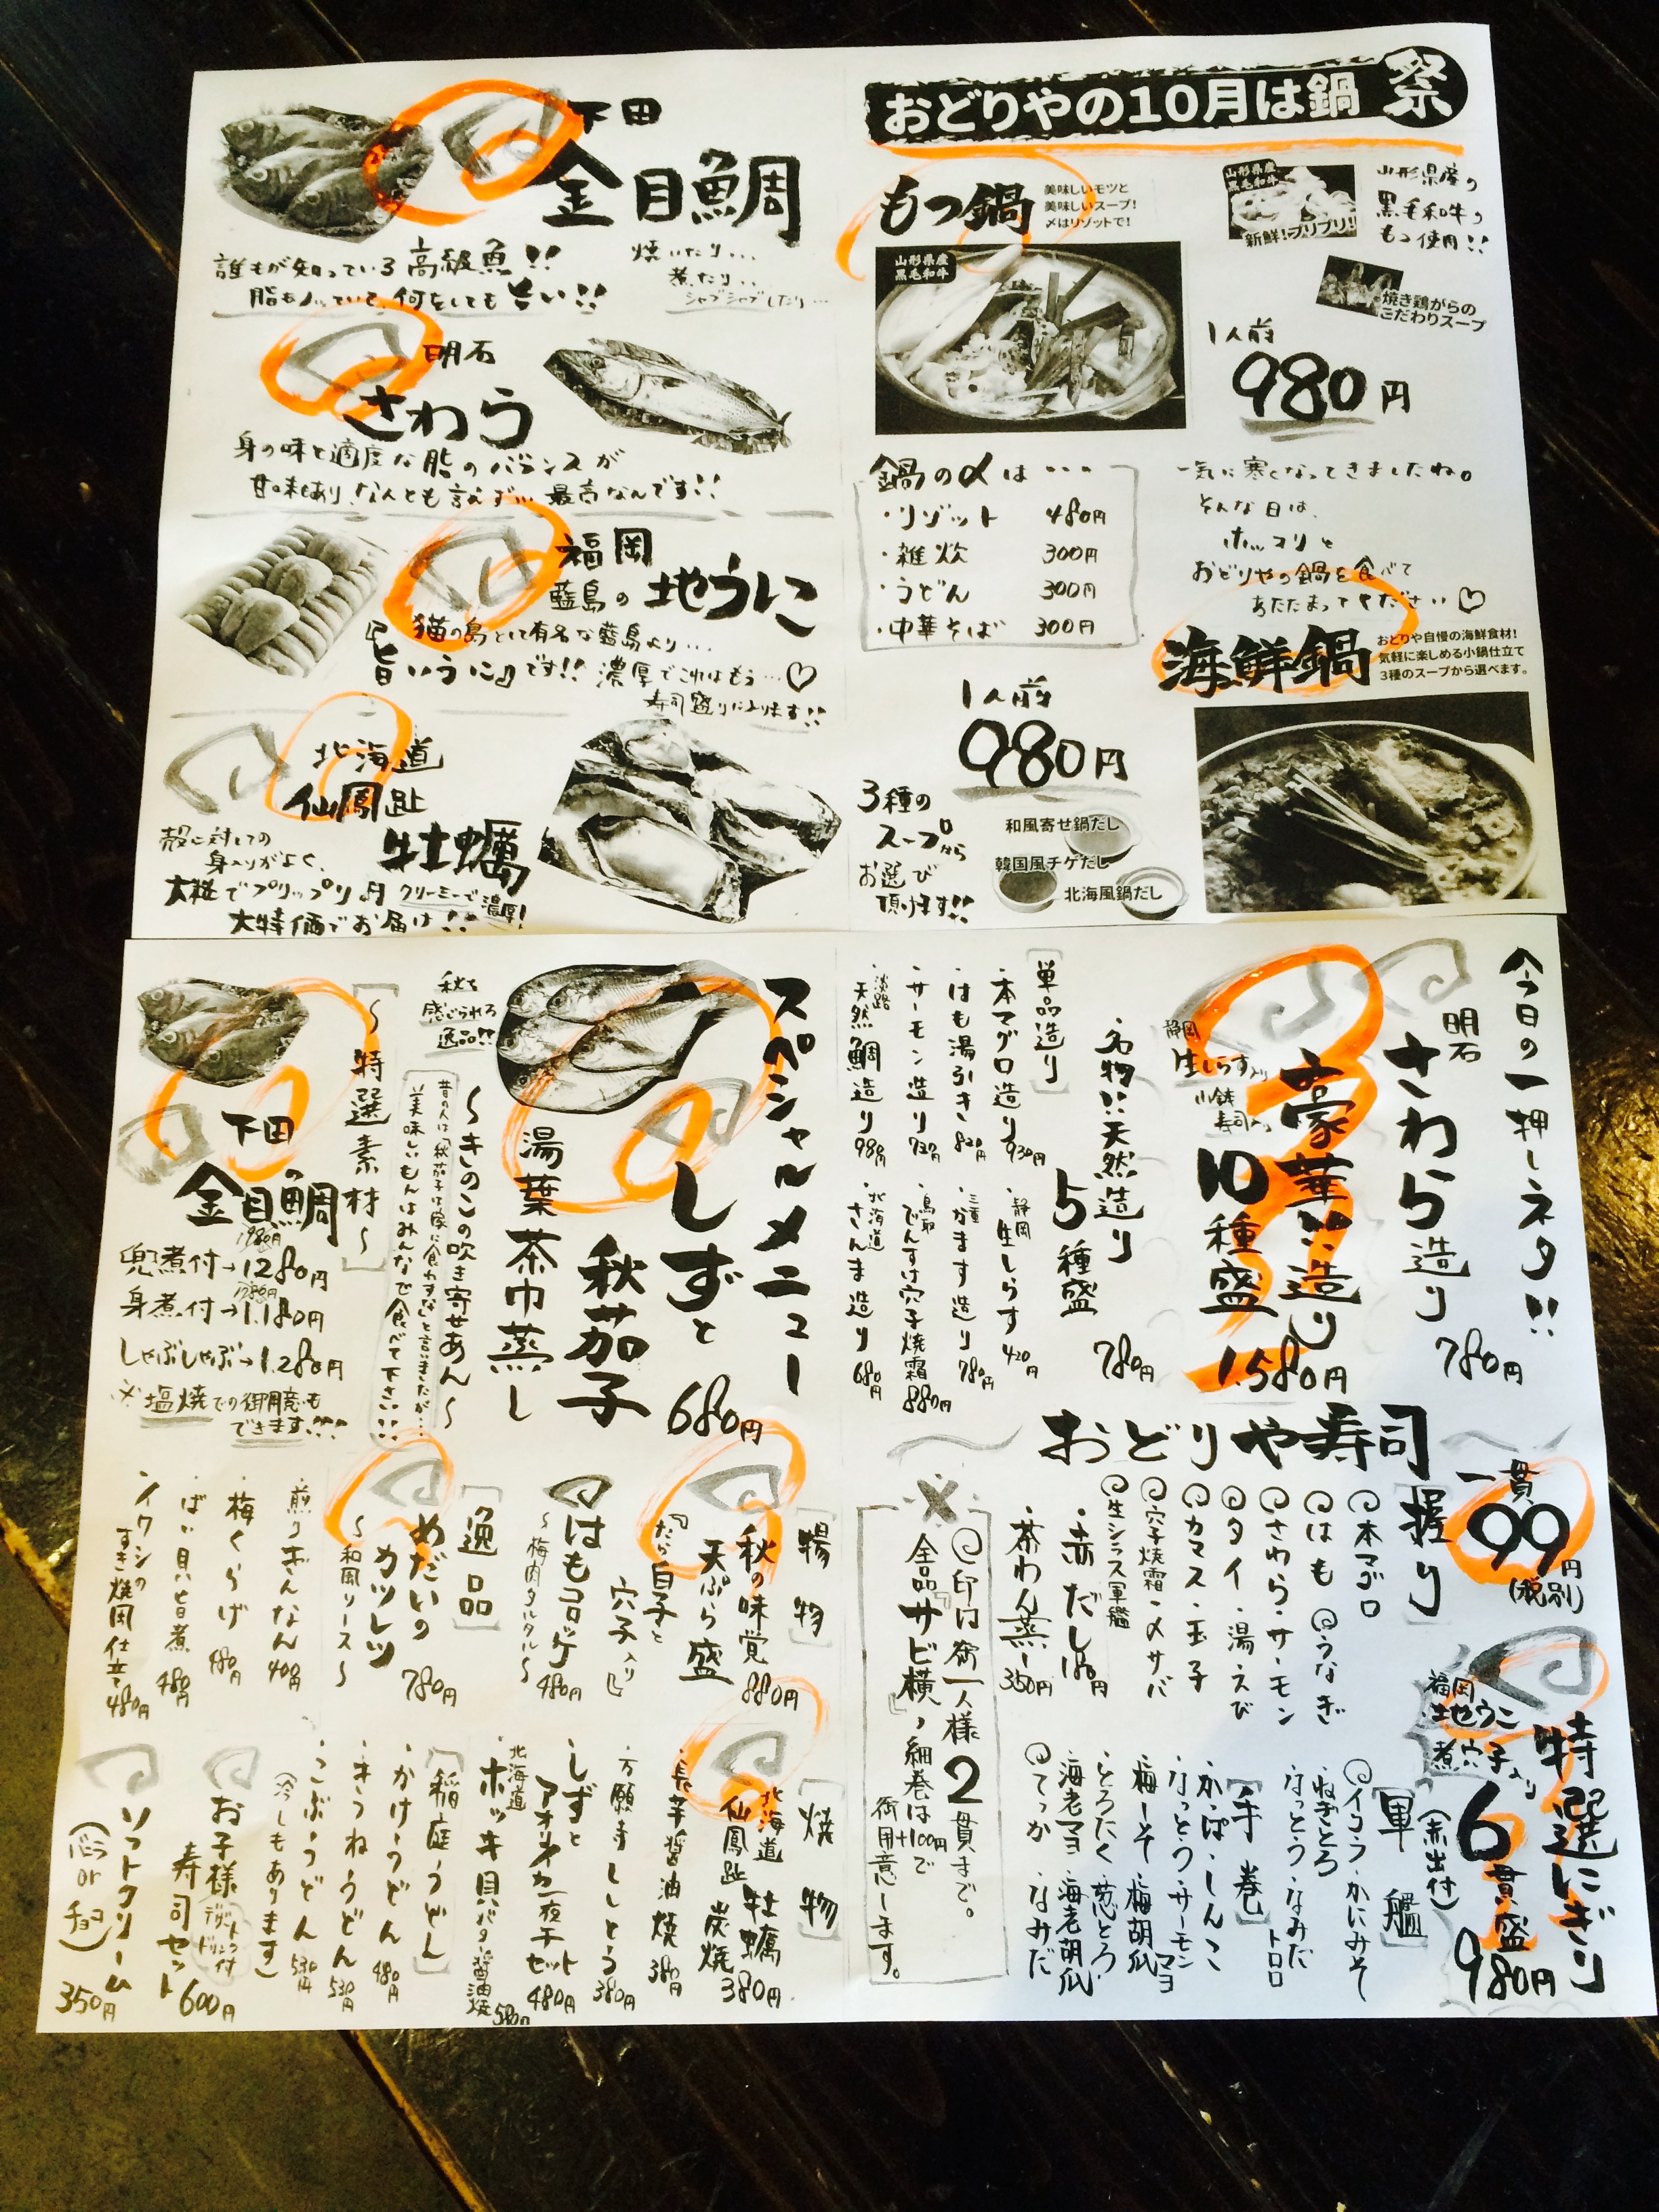 下田
金目鯛
誰もが知っている高級魚!!
脂ものっていて、何をしても旨い!!
焼いたり...
煮たり...
シャブシャブしたり...
明石
さわら
身の味と適度な脂のバランスが
甘味もあり なんとも言えず... 最高なんです!!
福岡
藍島の 地うに
猫の島として有名な藍島より...
『旨いうに』です!! 濃厚でこれはもう...♡
寿司盛りに入ります!!
北海道
仙鳳趾
牡蠣
殻に対しての
身入りがよく、
大粒でプリップリ クリーミーで濃厚!
大特価でお届け!!
おどりやの10月は鍋祭
もつ鍋
美味しいモツと
美味しいスープ!
〆はリゾットで!
山形県産
黒毛和牛
新鮮!プリプリ!
山形県産の
黒毛和牛の
もつ使用!!
山形県産
黒毛和牛
焼き鶏がらの
こだわりスープ
1人前
980円
鍋の〆は...
・リゾット 480円
・雑炊 300円
・うどん 300円
・中華そば 300円
一気に寒くなってきましたね。
そんな日は、
ホッコリと
おどりやの鍋を食べて
あたたまって下ださい♡
海鮮鍋
おどりや自慢の海鮮食材!
気軽に楽しめる小鍋仕立て
3種のスープから選べます。
1人前
980円
3種の
スープから
お選び
頂けます!!
和風寄せ鍋だし
韓国風チゲだし
北海風鍋だし
今日の一押しネタ!!
明石
さわら造り 780円
豪華!!造り
10種盛 1.580円
静岡
生しらす入り
山鉄
寿司入り
名物!!天然造り
5種盛 780円
[単品造り]
・本マグロ造り 930円
・はも湯引き 820円
・サーモン造り 720円
・淡路 天然鯛造り 980円
・静岡 生しらす 420円
・三重 かます造り 780円
・鳥取 でんすけ穴子焼霜 880円
・北海道 さんま造り 680円
スペシャルメニュー
しずと
秋茄子 680円
湯葉茶巾蒸し
～きのこの吹き寄せあん～
秋を
感じられる
逸品!!
昔の人は「秋茄子は嫁に食わすな」と言いましたが...
美味しいもんはみんなで食べて下さい!!
～特選素材～
下田
金目鯛
兜煮付→1280円
身煮付→1.180円
しゃぶしゃぶ→1.280円
※塩焼での御用意も
できます!!!
おどりや寿司
一貫
99円
(税別)
[握り]
本マグロ
はも うなぎ
さわら・サーモン
タイ・湯えび
カマス・玉子
穴子焼霜・〆サバ
生シラス軍艦
・赤だし 180円
茶わん蒸し 350円
印は御一人様2貫まで。
全品『サビ横』、細巻は+100円で
御用意します。
特選にぎり
福岡
地ウニ
煮穴子入り
6貫盛
(赤出付)
980円
[軍艦]
イクラ・かにみそ
・ねぎとろ
・なっとう・なみだ
トロロ
[手巻]
・かっぱ・しんこ
・なっとう・サーモンマヨ
・梅しそ・梅胡瓜
・とろたく・葱とろ
・海老マヨ・海老胡瓜
てっか・なみだ
[揚物]
秋の味覚
天ぷら盛 880円
『たら白子と
穴子入り』
はもコロッケ 480円
～梅肉タルタル～
[逸品]
めだいの
カツレツ 780円
～和風ソース～
・煎りぎんなん 400円
・梅くらげ 480円
・ばい貝旨煮 480円
・イワシの
すき焼風仕立て 480円
[焼物]
北海道
仙鳳趾 牡蠣
炭焼 380円
・長芋醤油焼 380円
・万願寺ししとう 380円
・しずと
アオリイカ一夜干セット 480円
・北海道
ホッキ貝バター醤油焼 580円
[稲庭うどん]
・かけうどん 480円
・きつねうどん 530円
・こぶうどん 530円
(冷しもあります)
お子様
寿司セット 600円
デザート
ドリンク付
ソフトクリーム
(バニラorチョコ) 350円